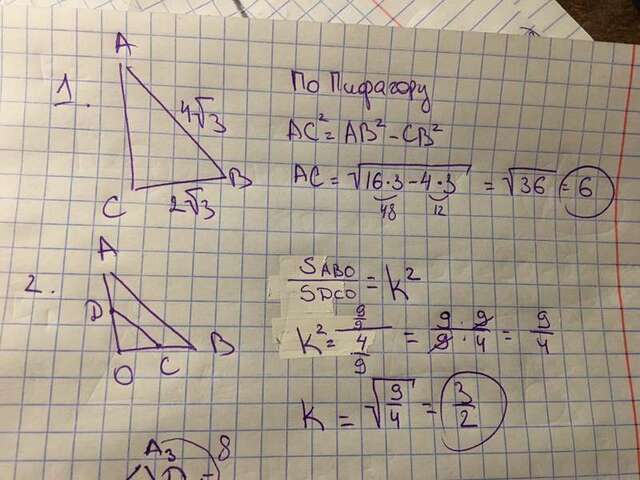 1.
A
4√3
C
B
2√3
По Пифагору
AC² = AB² - CB²
AC = √16·3 - 4·3 = √36 = 6
48 12
2.
A
D
O
C
B
SABO/SDCO = K²
K² = 9/9 / 4/9 = 9·9/9·4 = 9/4
K = √9/4 = 3/2
A3
8